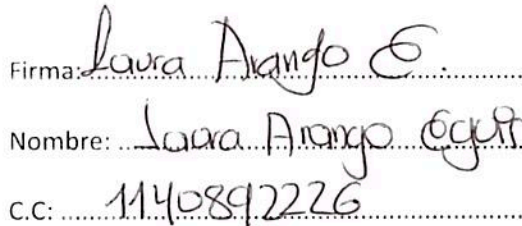 Firma: Laura Arango E.
Nombre: Laura Arango
C.C: 1140892226